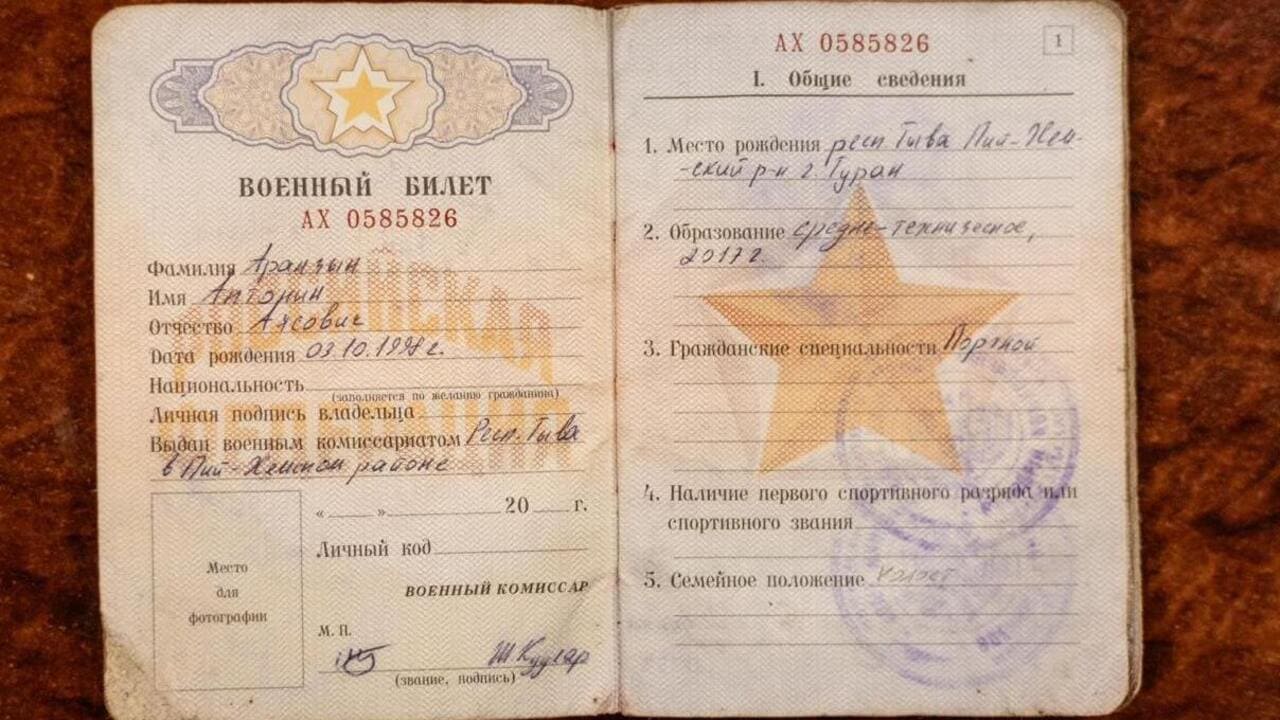 ВОЕННЫЙ БИЛЕТ
АХ 0585826
Фамилия Аранчын
Имя
Отчество Аясович
Дата рождения 03.10.1998г.
Национальность
(заполняется по желанию гражданина)
Личная подпись владельца
Выдан военным комиссариатом Респ. Тыва
в Пий-Хемском районе
« » 20 г.
Личный код
ВОЕННЫЙ КОМИССАР
Место
для
фотографии
М. П.
Ш Куулар
(звание, подпись)
АХ 0585826
1
I. Общие сведения
1. Место рождения респ Тыва Пий-Хем-
-ский р-н г. Туран
2. Образование средне-техническое,
2017г.
3. Гражданские специальности Портной
4. Наличие первого спортивного разряда или
спортивного звания
5. Семейное положение холост